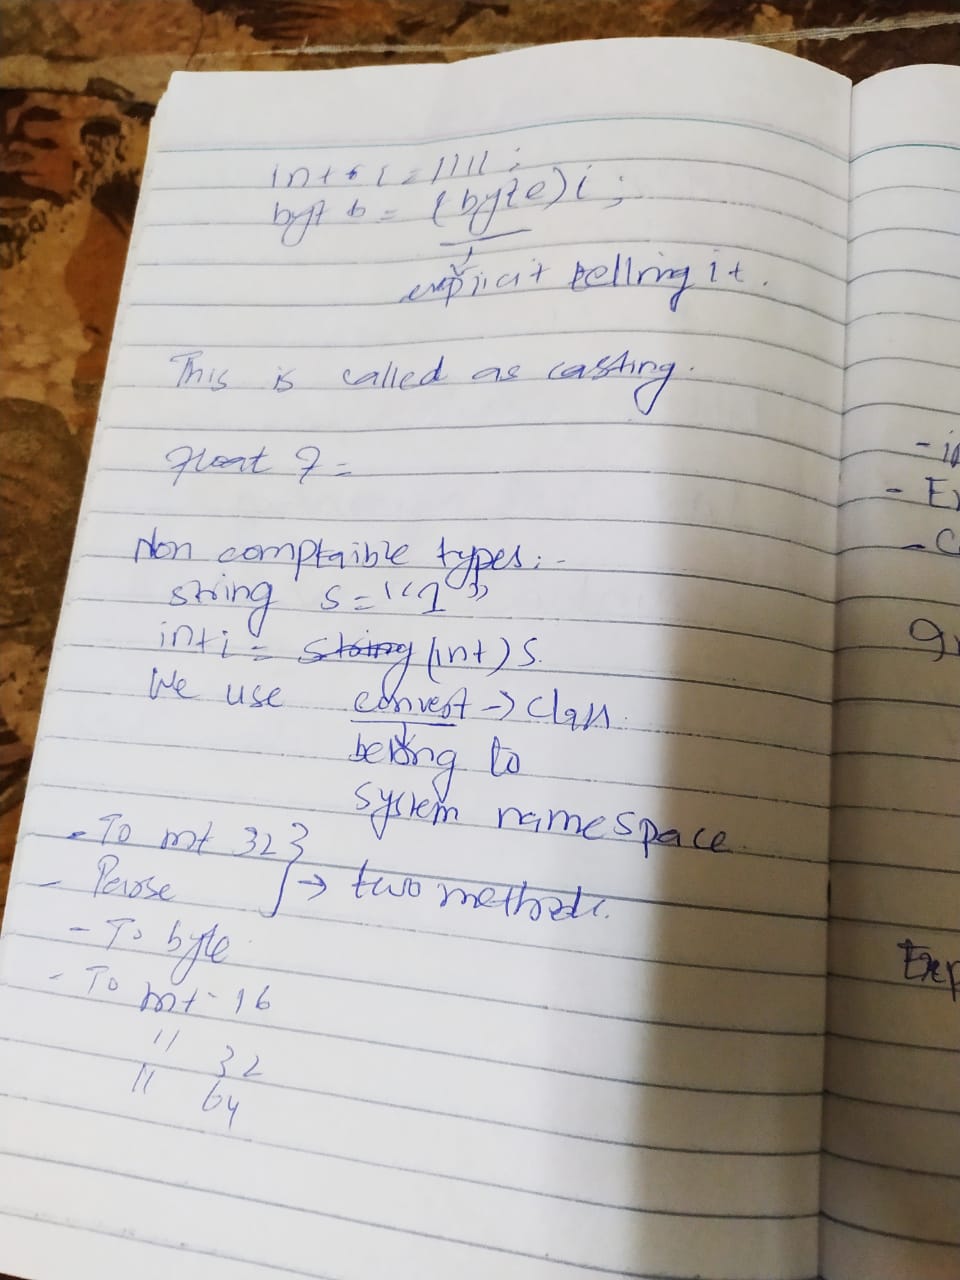 int i = 1111;
byt b = (byte)i;
explicit telling it.
This is called as casting.
Float f =
Non comptaible types:-
string s = "1"
int i = string (int) s.
We use convert → class.
belong to
system namespace
- To int 32 }
- Parse } → two methods.
- To byte
- To int - 16
" 32
" 64
- in
- Ex
- C
gr
Exp